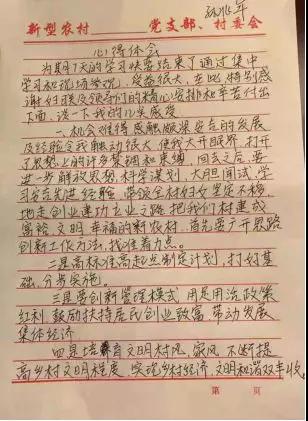 孙兆年
新型农村 党支部、村委会
心得体会
为期7天的学习快要结束了通过集中
学习和现场参观，受益很大，在此，特别感
谢妇联及领导们的精心安排和辛苦付出
下面，谈一下我的几点感受
一、机会难得感触颇深安吉的发展
及经验令我触动很大使我大开眼界，打开
了思想上的许多禁锢和束缚，回去之后要
进一步解放思想，科学谋划，大胆闯试，学
习安吉先进经验，带领全村妇女坚定不移
地走创业建功立业之路把我们村建成
富裕文明幸福的新农村，首先要广开思路
创新工作方法，找准着力点。
二是高标准高起点制定计划，打好基
础，分步实施。
三是要创新管理模式，用足用活政策
红利鼓励扶持居民创业致富带动发展
集体经济
四是培育文明村风，家风，不断提
高乡村文明程度，实现乡村经济，文明和谐双丰收
第 页